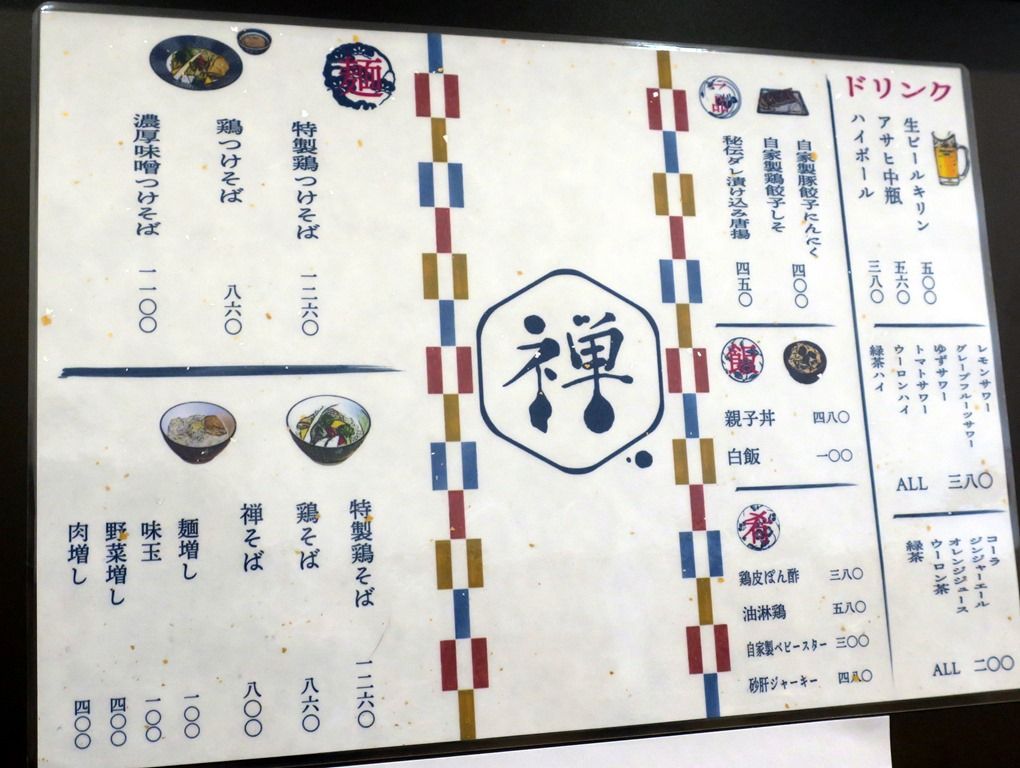 麺
特製鶏つけそば 一二六〇
鶏つけそば 八六〇
濃厚味噌つけそば 一一〇〇
特製鶏そば 一二六〇
鶏そば 八六〇
禅そば 八〇〇
麺増し 一〇〇
味玉 一〇〇
野菜増し 四〇〇
肉増し 四〇〇
禅
自家製豚餃子にんにく 四〇〇
自家製鶏餃子しそ
秘伝ダレ漬け込み唐揚 四五〇
飯
親子丼 四八〇
白飯 一〇〇
肴
鶏皮ぽん酢 三八〇
油淋鶏 五八〇
自家製ベビースター 三〇〇
砂肝ジャーキー 四八〇
ドリンク
生ビールキリン 五〇〇
アサヒ中瓶 五六〇
ハイボール 三八〇
レモンサワー
グレープフルーツサワー
ゆずサワー
トマトサワー
ウーロンハイ
緑茶ハイ
ALL 三八〇
コーラ
ジンジャーエール
オレンジジュース
ウーロン茶
緑茶
ALL 二〇〇